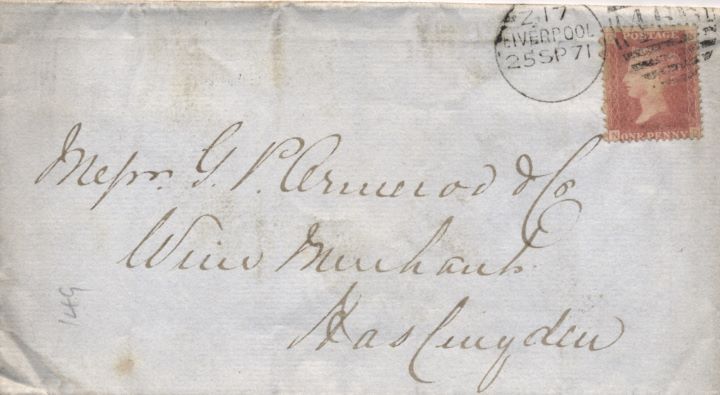 Z17
LIVERPOOL
25 SP 71
POSTAGE
ONE PENNY
Messrs. G. P. Ormerod & Co
Wine Merchants
Haslingden
149